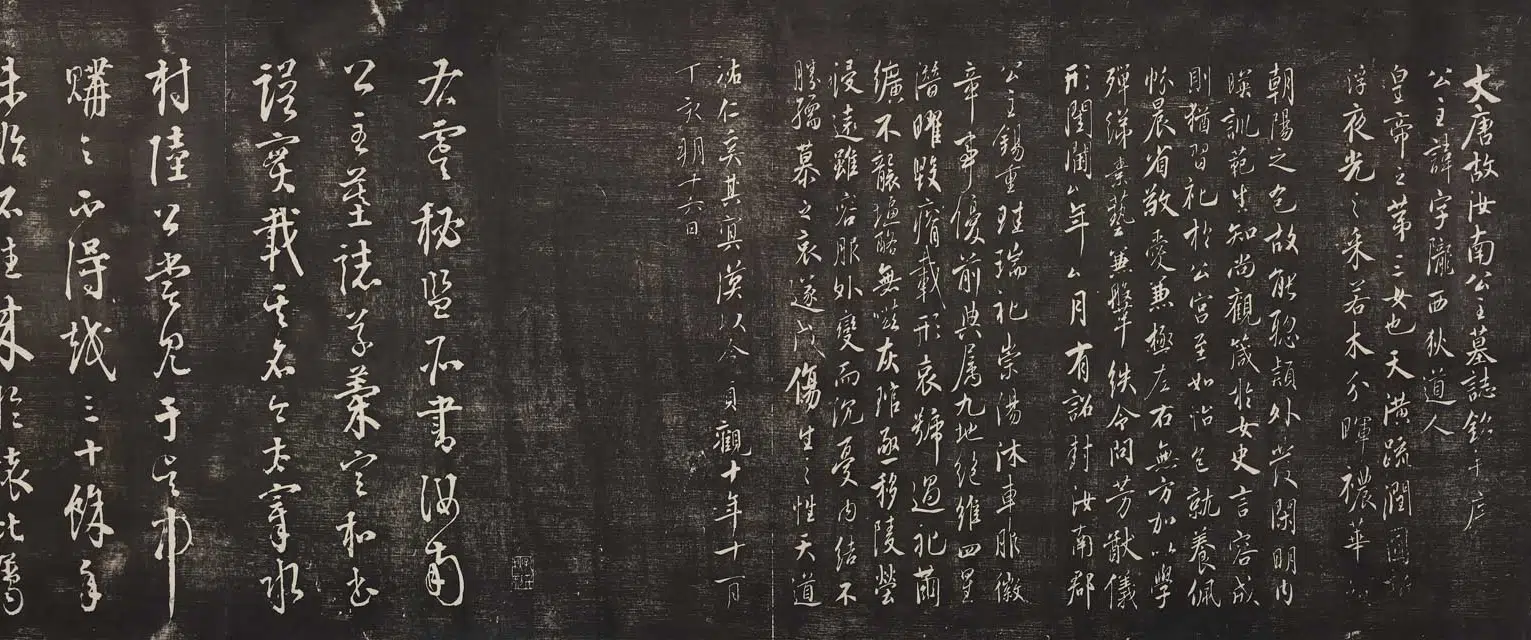 大唐故汝南公主墓誌銘并序
公主諱字隴西狄道人
皇帝之第三女也天潢疏潤圓折
浮夜光之采若木分暉穠華
朝陽之色故能聰穎外發閑明內
暎訓範生知尚觀箴於女史言容成
則猶習礼於公宮至如怡色就養佩
帉晨省敬愛兼極左右無方加以學
殫綈素藝兼鞶紩令問芳猷儀
形閨閫公年公月有詔封汝南郡
公主錫重珪瑞礼崇湯沐車服徽
章事優前典属九地絕維四星
潛曜毀瘠載形哀號過礼繭
纊不襲塩酪無嗞灰琯亟移陵塋
浸遠雖容服外變而沉憂內結不
勝孺慕之哀遂成傷生之性天道
祐仁奚其冥漠以今貞觀十年十一月
丁亥朔十六日
右虞秘監所書汝南
公主墓誌草藁宣和書
譜實載其名今太宰水
村陸公嘗見于吳中
購之不得越三十餘年